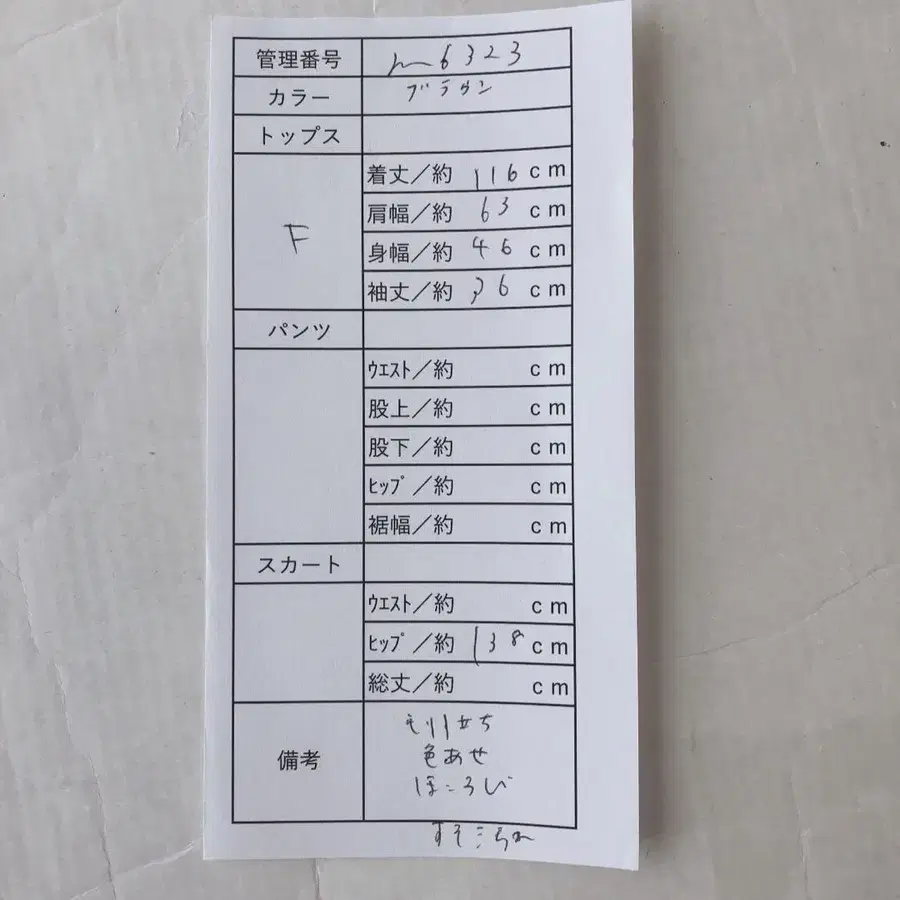 管理番号 m6323
カラー ブラウン
トップス
F
着丈／約 116 cm
肩幅／約 63 cm
身幅／約 46 cm
袖丈／約 36 cm
パンツ
ｳｴｽﾄ／約 cm
股上／約 cm
股下／約 cm
ﾋｯﾌﾟ／約 cm
裾幅／約 cm
スカート
ｳｴｽﾄ／約 cm
ﾋｯﾌﾟ／約 138 cm
総丈／約 cm
備考
色あせ
ほころび